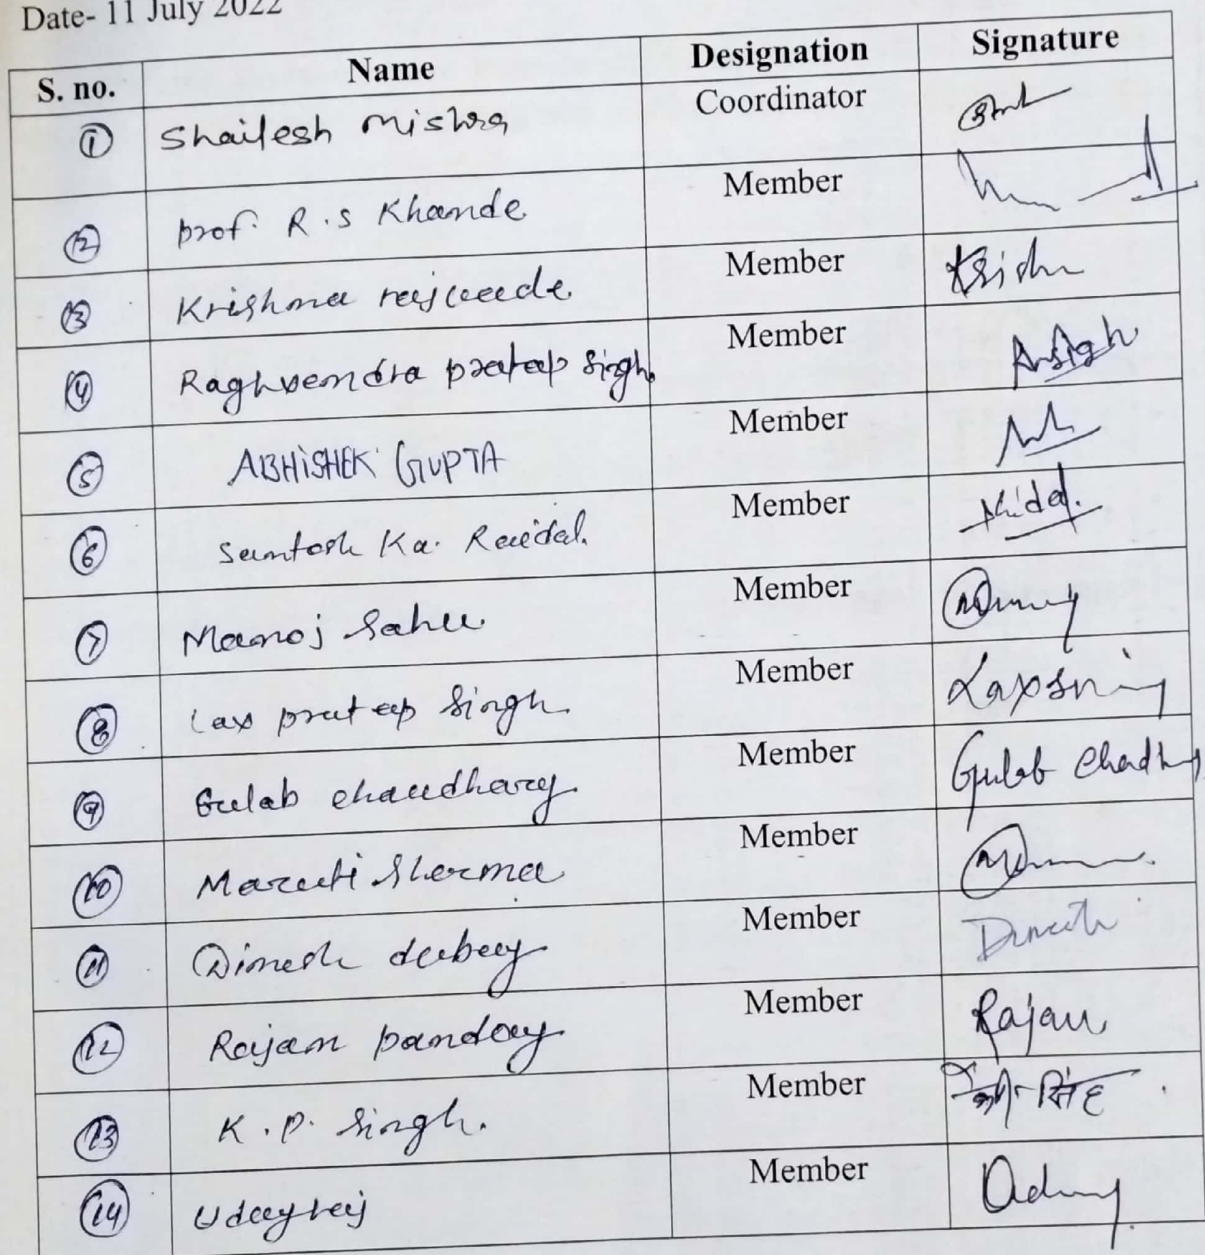 Date- 11 July 2022
S. no. Name Designation Signature
1 Shailesh Mishra Coordinator
2 prof. R.S Khande Member
3 Krishna rajwade Member Krishn
4 Raghvendra pratap Singh Member
5 ABHISHEK GUPTA Member
6 Santosh Ku. Member
7 Manoj Sahu Member
8 Lax pratap Singh Member
9 Gulab chaudhary Member Gulab
10 Maruti Sharma Member
11 Dinesh dubey Member Dinesh
12 Rajan panday Member Rajan
13 K.P. Singh. Member सिंह
14 Udayraj Member